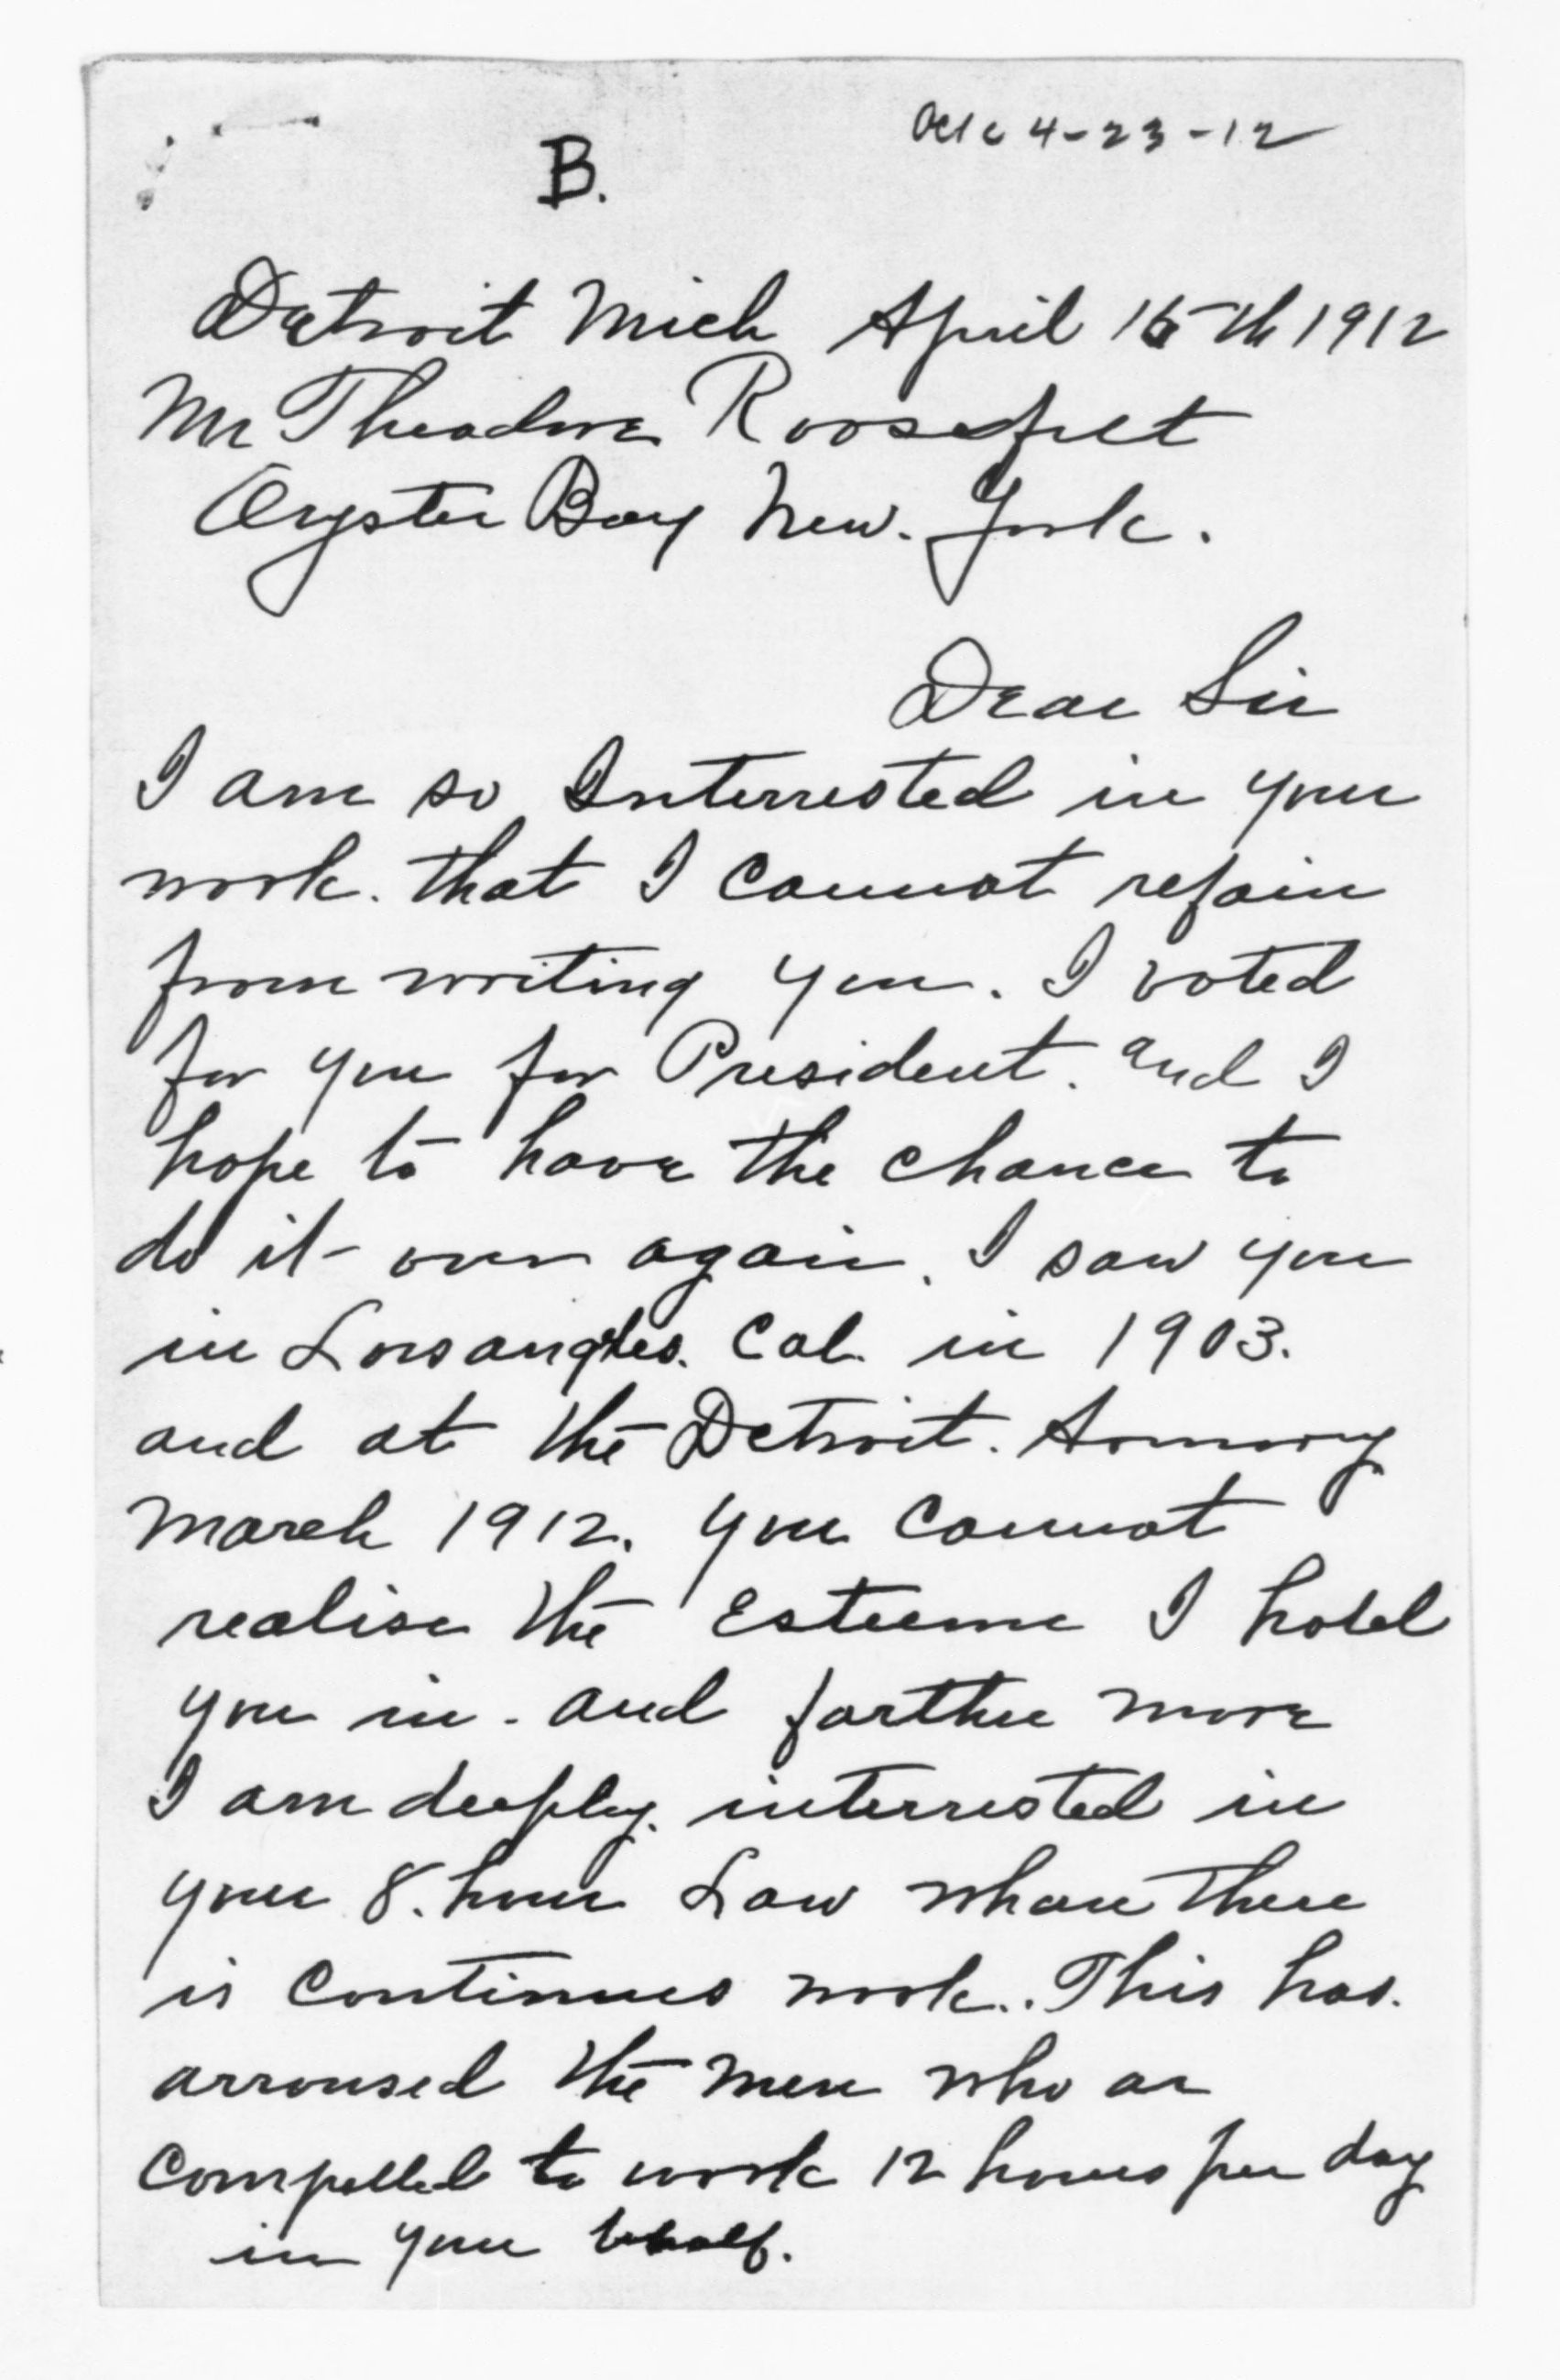 Ack 4-23-12
B.
Detroit Mich April 15th 1912
Mr Theodore Roosefelt
Oryster Bay New. York.
Dear Sir
I am so Interrested in your
work. that I cannot refain
from writing you. I voted
for you for President. and I
hope to have the chance to
do it over again. I saw you
in Losangeles. Cal. in 1903.
and at the Detroit. Armory
March 1912. you cannot
realise the Esteeme I hold
you in. and farther more
I am deeply. interrested in
your 8. hour Law whare there
is continues work.. This has.
arroused the men who ar
compelled to work 12 hours per day
in your behalf.